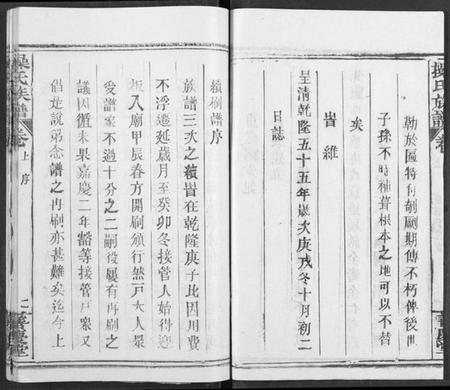 勒於區特付剞劂期傳不朽俾後世
子孫不時補葺根本之地可以不替
矣
旹維
皇清乾隆五十五年歲次庚戌冬十月初二
日誌
操氏族譜
卷
續刷譜序
族譜三次之續旹在乾隆庚子比因用費
不浮遷延歲月至癸卯冬接管人始得迎
板入廟甲辰春方開刷頒行然戸大人衆
受譜案不過十分之二嗣後屢有再刷之
議因循未果嘉慶二年豁等接管戸衆又
倡是說第念譜之再刷亦甚難矣迄今上
操氏族譜
卷上 序
二